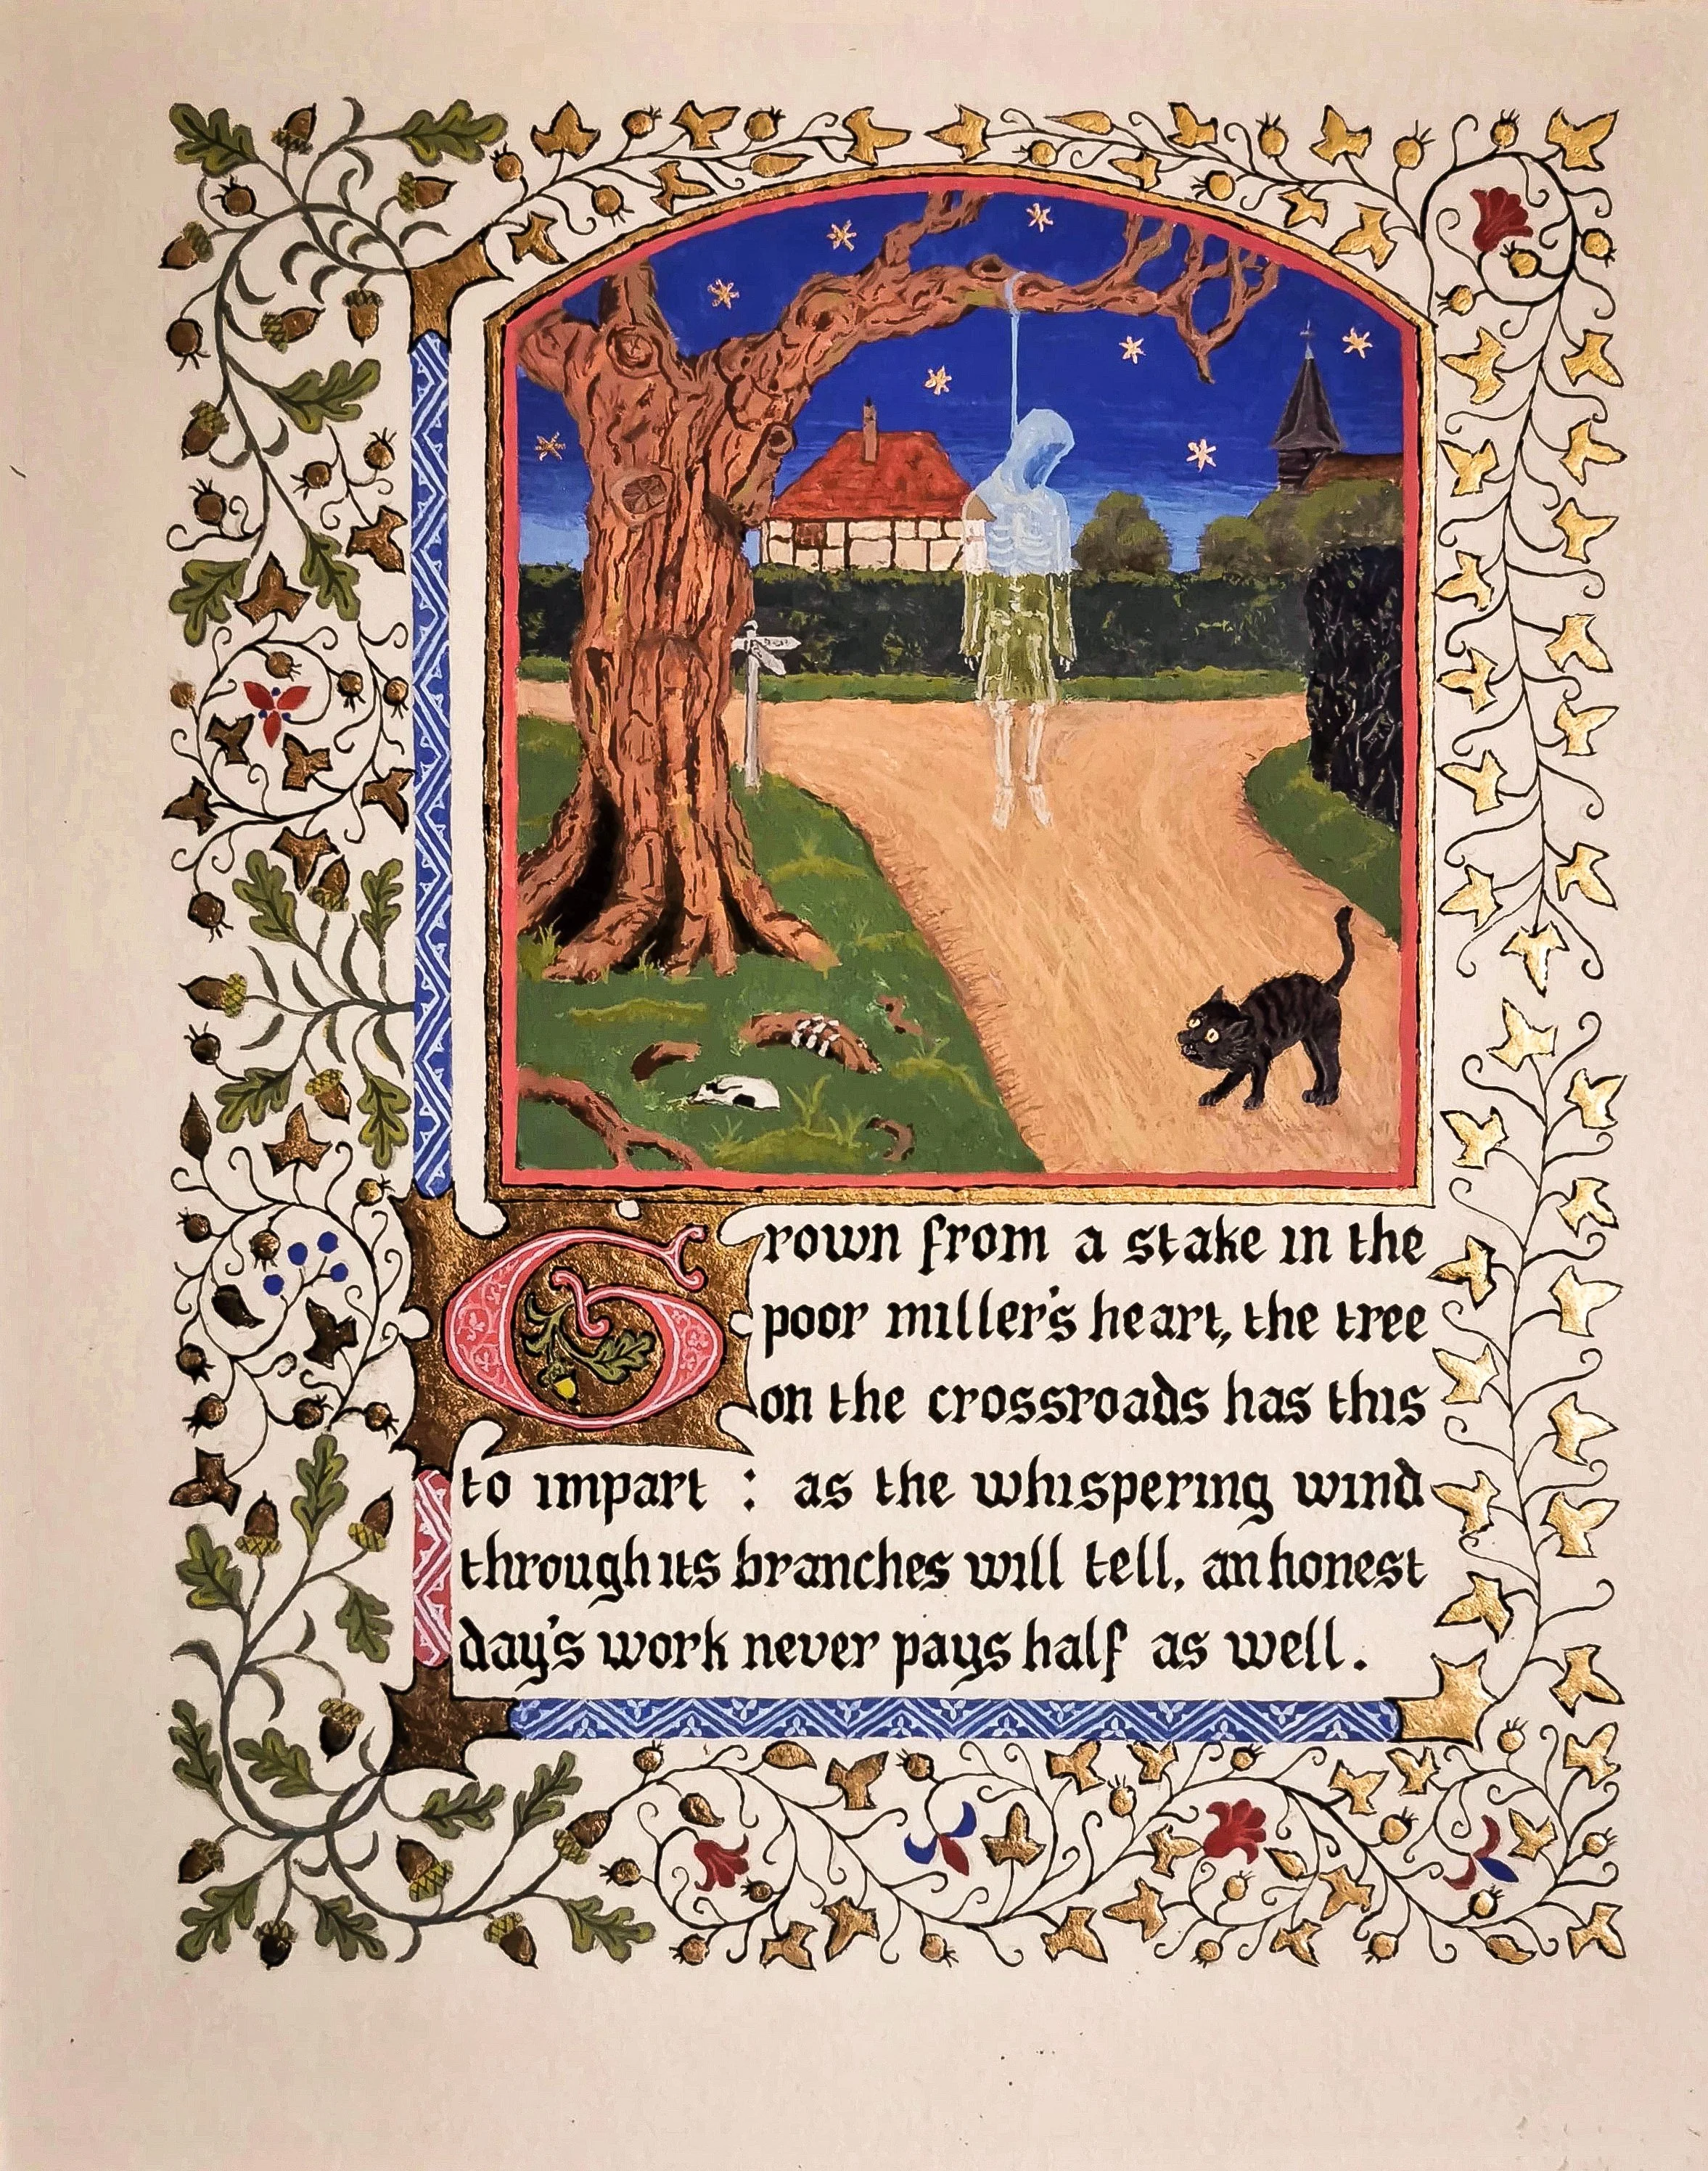 Grown from a stake in the
poor miller's heart, the tree
on the crossroads has this
to impart : as the whispering wind
through its branches will tell, an honest
day's work never pays half as well.